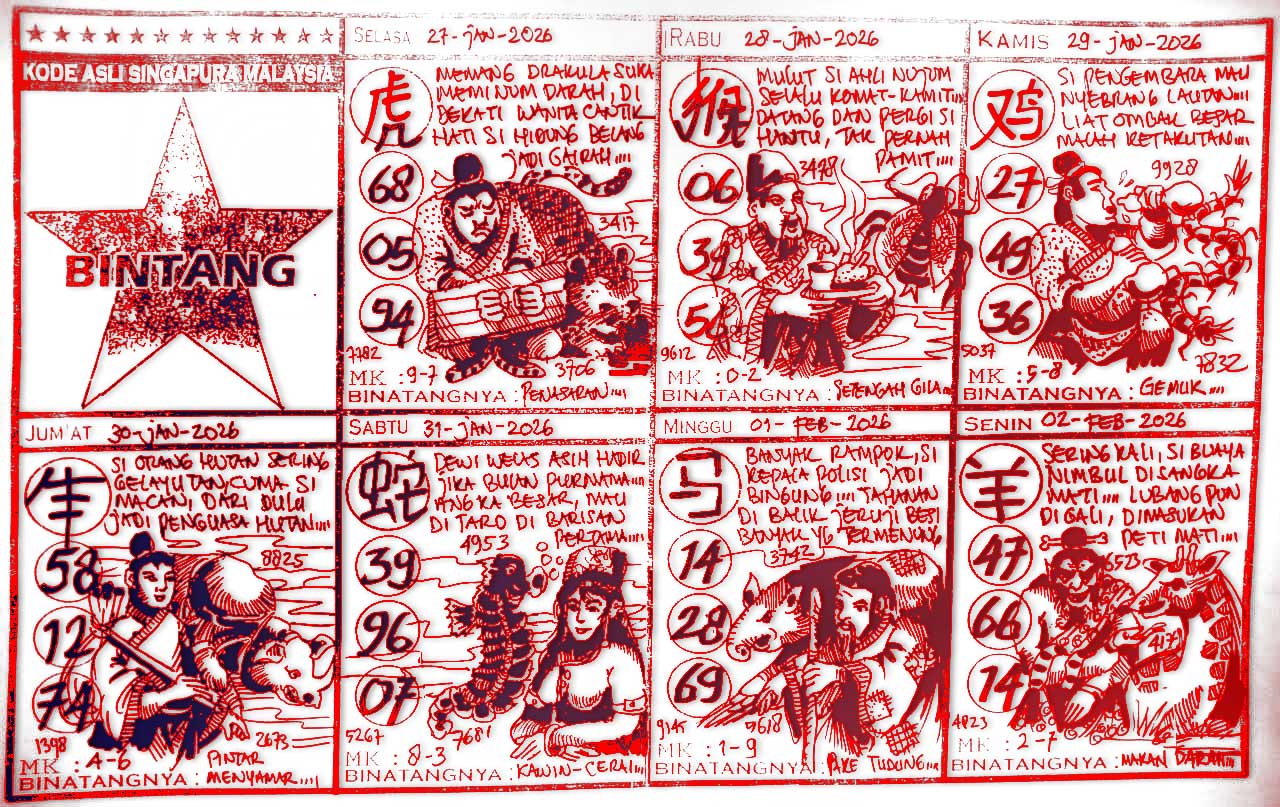 KODE ASLI SINGAPURA MALAYSIA
BINTANG
SELASA 27-JAN-2026
虎
MEMANG DRAKULA SUKA
MEMINUM DARAH, DI
DEKATI WANITA CANTIK
HATI SI HIDUNG BELANG
JADI GAIRAH....
68
05
94
3417
7782
3706
MK : 9-7
BINATANGNYA : PENASARAN....
RABU 28-JAN-2026
猴
MULUT SI AHLI NUJUM
SELALU KOMAT-KAMIT...
DATANG DAN PERGI SI
HANTU, TAK PERNAH
PAMIT....
3498
06
39
9612
MK : 0-2
BINATANGNYA : SETENGAH GILA...
KAMIS 29-JAN-2026
鸡
SI PENGEMBARA MAU
NYEBRANG LAUTAN....
LIAT OMBAK BESAR
MALAH KETAKUTAN....
9928
27
49
36
5037
7832
MK : 5-8
BINATANGNYA : GEMUK....
JUM'AT 30-JAN-2026
牛
SI ORANG HUTAN SERING
GELAYUTAN, CUMA SI
MACAN, DARI DULU
JADI PENGUASA HUTAN....
8825
58
12
74
1398
2673
MK : 4-6
BINATANGNYA : PINTAR
MENYAMAR....
SABTU 31-JAN-2026
蛇
DEWI WELAS ASIH HADIR
JIKA BULAN PURNAMA....
ANGKA BESAR, MAU
DI TARO DI BARISAN
PERTAMA....
4953
39
96
07
5267
7681
MK : 8-3
BINATANGNYA : KAWIN-CERAI....
MINGGU 01-FEB-2026
马
BANYAK RAMPOK, SI
KEPALA POLISI JADI
BINGUNG.... TAHANAN
DI BALIK JERUJI BESI
BANYAK YG TERMENUNG
3742
14
28
69
9145
5618
MK : 1-9
BINATANGNYA : PAKE TUDUNG....
SENIN 02-FEB-2026
羊
SERING KALI, SI BUAYA
NIMBUL DI SANGKA
MATI.... LUBANG PUN
DI GALI, DIMASUKAN
PETI MATI....
6523
47
66
14
4823
MK : 2-7
BINATANGNYA : MAKAN DARAH....